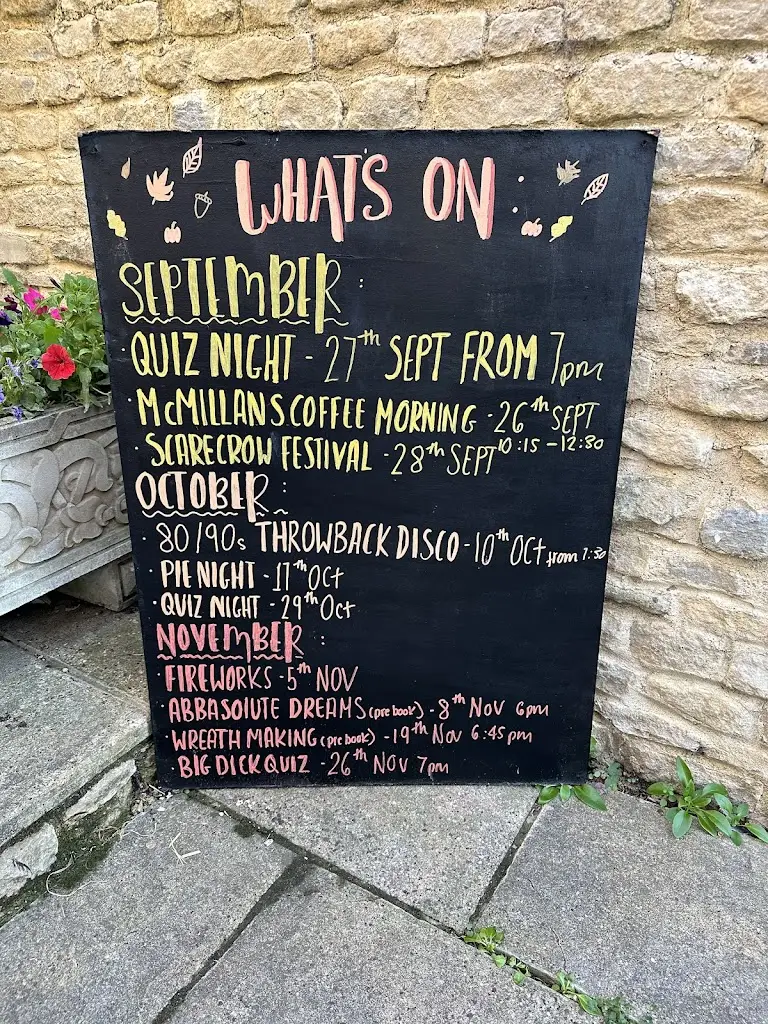 WHAT'S ON
SEPTEMBER :
· QUIZ NIGHT - 27th SEPT FROM 7pm
· McMILLANS COFFEE MORNING - 26th SEPT
· SCARECROW FESTIVAL - 28th SEPT 10:15 - 12:30
OCTOBER :
· 80/90s THROWBACK DISCO - 10th Oct from 7:30
· PIE NIGHT - 17th Oct
· QUIZ NIGHT - 29th Oct
NOVEMBER :
· FIREWORKS - 5th NOV
· ABBASOlUTE DREAMS (pre book) - 8th Nov 6pm
· WREATH MAKING (pre book) - 19th Nov 6:45pm
· BIG DICK QUIZ - 26th Nov 7pm